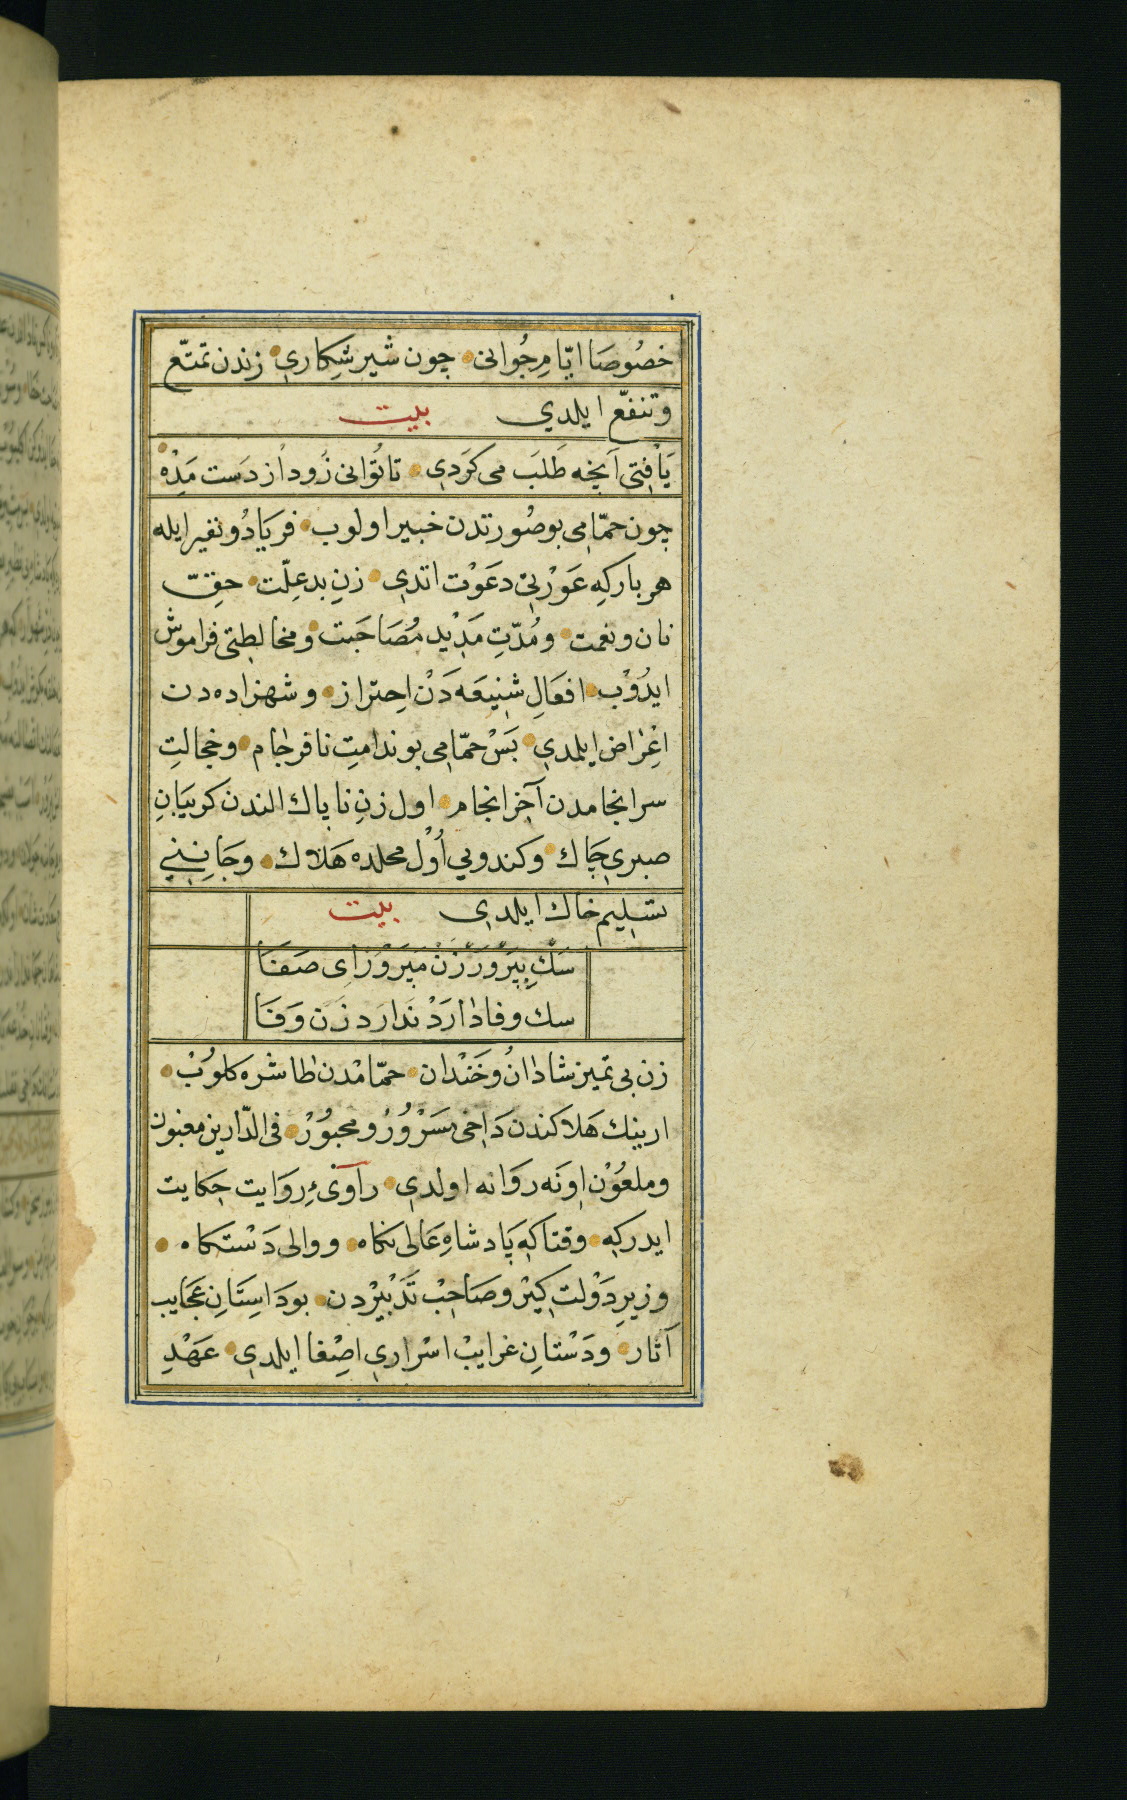 خصُوصَا ايّامِ جُوانی چون شيرشِكاري زندن تمتّع
وتنفّع ايلدي بيت
يَافتی آنچه طَلَب می كَردی تاتُوانی زُود از دَست مَدِه
چون حمّامی بوصُورتدن خبير اولوب فريَادُ ونفير ايله
هر باركِه عَوْرتی دعَوْت اتدی زنِ بدعِلّت حقّ
نان ونعمت ومُدّتِ مَدِيد مُصَاحَبت ومخالطتی فراموش
ايدُوْب افعَالِ شنيعَه دَنْ اِحتراز وشهزاده دن
اِغْرَاض ايلمدی بَسْ حمّامی بو ندامتِ نافرجام وخجالتِ
سرانجامدن آخر انجام اول زنِ ناپاك الندن كريبَانِ
صبری چَاك وكندويی اُوْل محلده هَلاك وجَانِنی
تسليمِ خاك ايلدی بيت
سَكِ بِپَروَر زن مپَروَر ای صَفَا
سك وفا دارَدْ ندارد زن وَفَا
زن بی تميز شادانُ وخَنْدان حمّامدن طاشره كلوُبْ
ارينك هَلاكندن دَاخی مَسْرُورُ ومحبوُرْ فی الدّارين مغبون
وملعُوْن اونَه روَانه اولدی راوئِ روَايت حِكايت
ايدركه وقتاكه پَادشاهِ عَالی نكاه ووالی دَستكاه
وزيرِ دَوْلت كيرْ وصَاحِبْ تَدْبيردن بو دَاستَانِ عجَايب
آثار ودَستانِ غرايبْ اسْراری اصِغْا ايلدی عَهْدِ